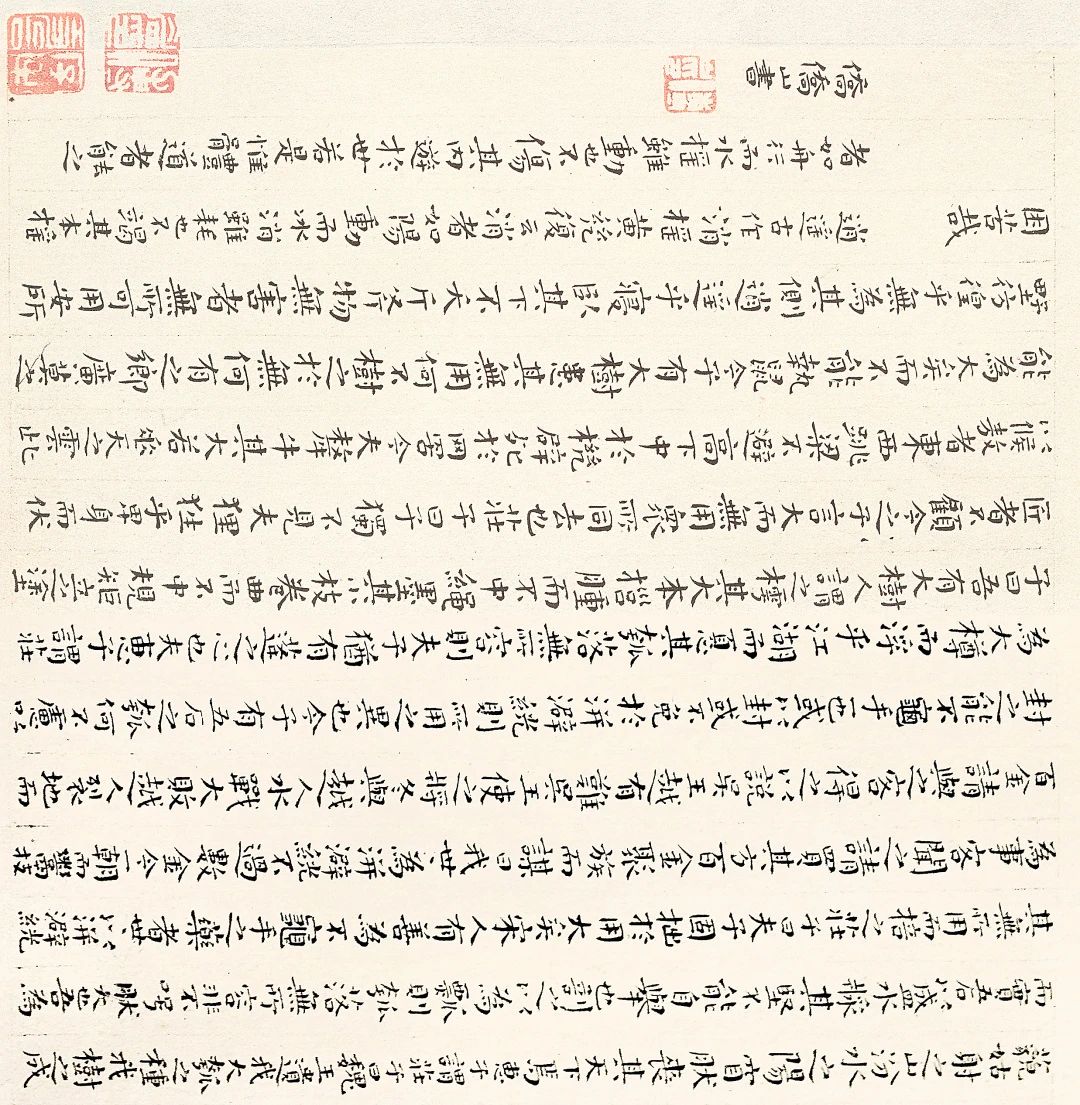 藐姑射之山汾水之陽窅然喪其天下焉惠子謂莊子曰魏王遺我大瓠之種我樹之成
而實五石以盛水漿其堅不能自舉也剖之以為瓢則瓠落無所容非不呺然大也吾為
其無用而掊之莊子曰夫子固拙於用大矣宋人有善為不龜手之藥者世世以洴澼絖
為事客聞之請買其方百金聚族而謀曰我世世為洴澼絖不過數金今一朝而鬻技
百金請與之客得之以說吳王越有難吳王使之將冬與越人水戰大敗越人裂地而
封之能不龜手一也或以封或不免於洴澼絖則所用之異也今子有五石之瓠何不慮以
為大樽而浮乎江湖而憂其瓠落無所容則夫子猶有蓬之心也夫惠子謂莊
子曰吾有大樹人謂之樗其大本擁腫而不中繩墨其小枝卷曲而不中規矩立之塗
匠者不顧今之子言大而無用衆所同去也莊子曰子獨不見夫狸狌乎卑身而伏
以候敖者東西跳梁不避高下中於機辟死於罔罟今夫斄牛其大若垂天之雲此
能為大矣而不能執鼠今子有大樹患其無用何不樹之於無何有之鄉廣莫之
野彷徨乎無為其側逍遙乎寢臥其下不夭斤斧物無害者無所可用安所
困苦哉
逍遙古作消搖黃幾復云消者如陽動而冰消雖耗也不竭其本搖
者如舟行而水搖雖動也不傷其內遊於世若是惟體道者能之
僑僑山書